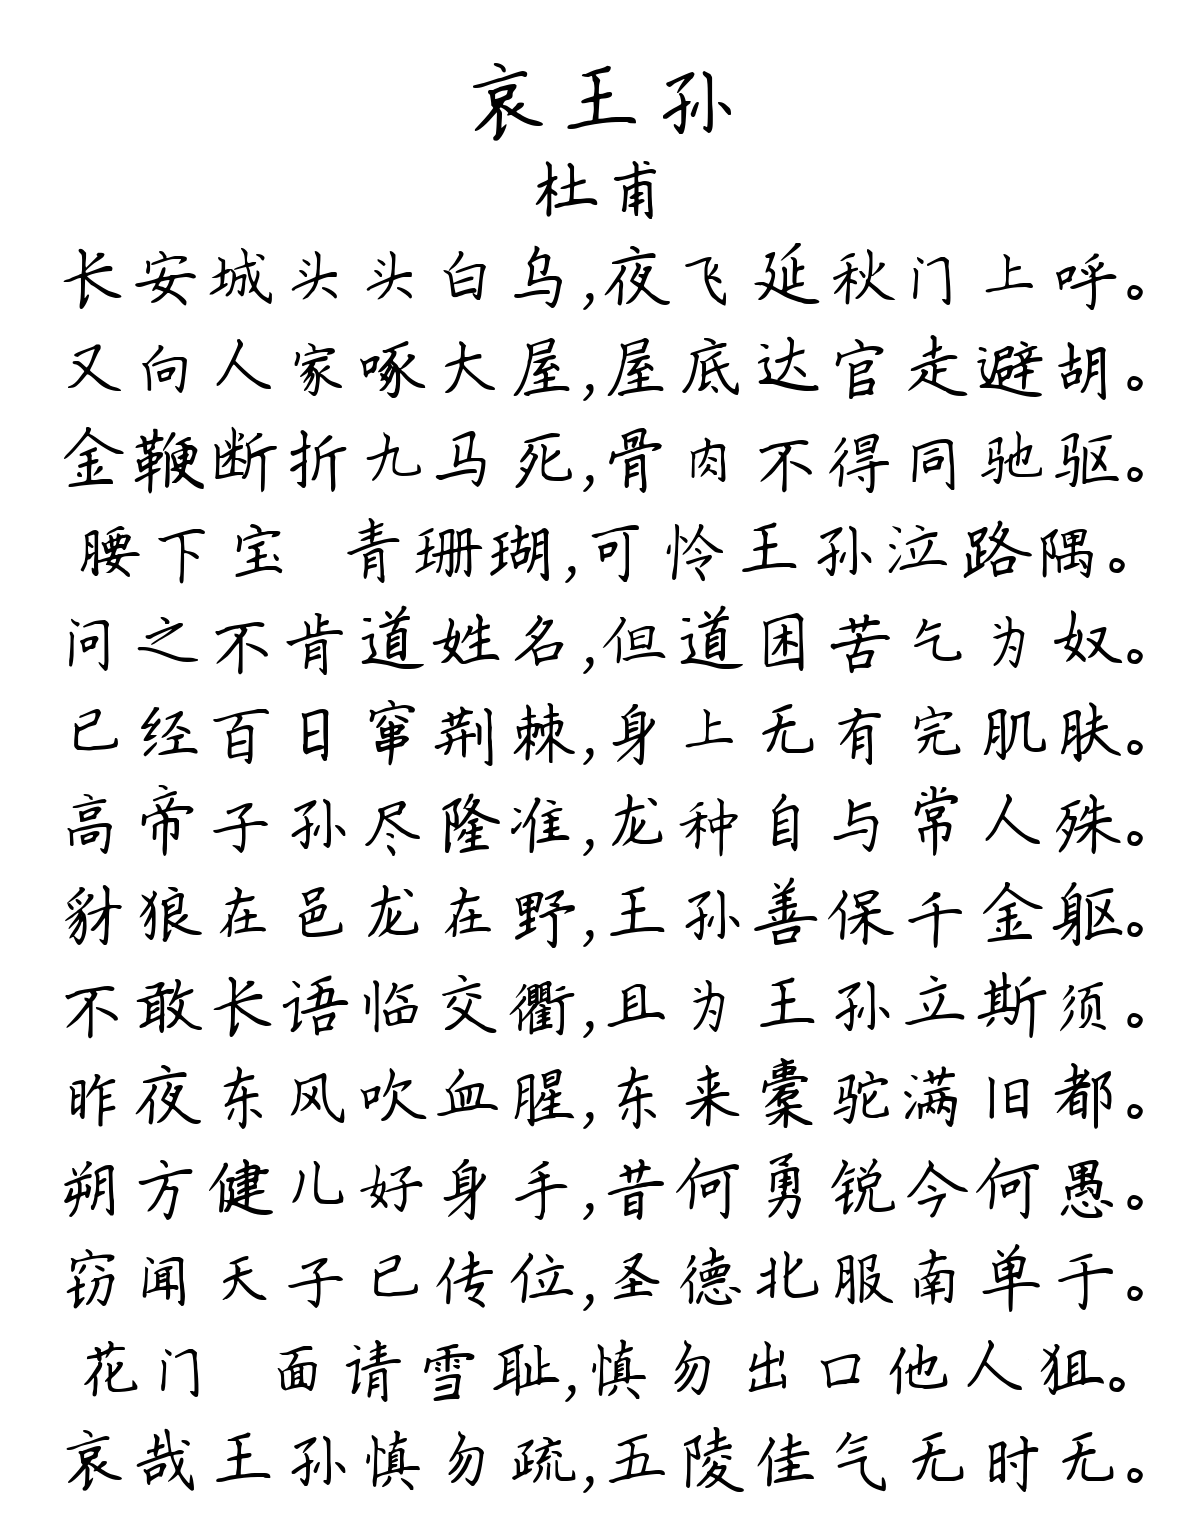 哀王孙
杜甫
长安城头头白乌,夜飞延秋门上呼。
又向人家啄大屋,屋底达官走避胡。
金鞭断折九马死,骨肉不得同驰驱。
腰下宝 青珊瑚,可怜王孙泣路隅。
问之不肯道姓名,但道困苦乞为奴。
已经百日窜荆棘,身上无有完肌肤。
高帝子孙尽隆准,龙种自与常人殊。
豺狼在邑龙在野,王孙善保千金躯。
不敢长语临交衢,且为王孙立斯须。
昨夜东风吹血腥,东来橐驼满旧都。
朔方健儿好身手,昔何勇锐今何愚。
窃闻天子已传位,圣德北服南单于。
花门 面请雪耻,慎勿出口他人狙。
哀哉王孙慎勿疏,五陵佳气无时无。